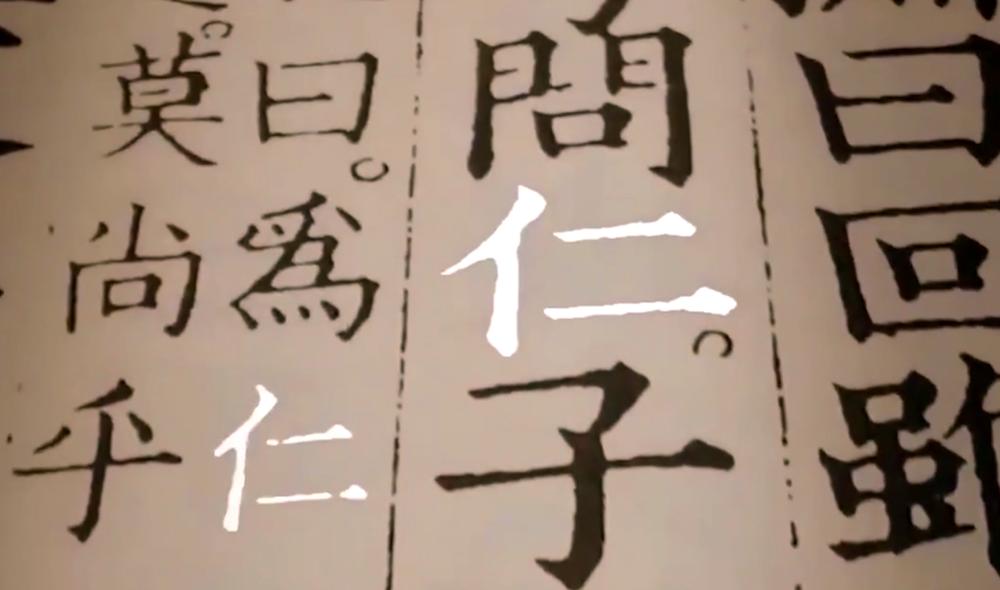 曰回雖
問仁。子
曰。爲仁
莫尚乎